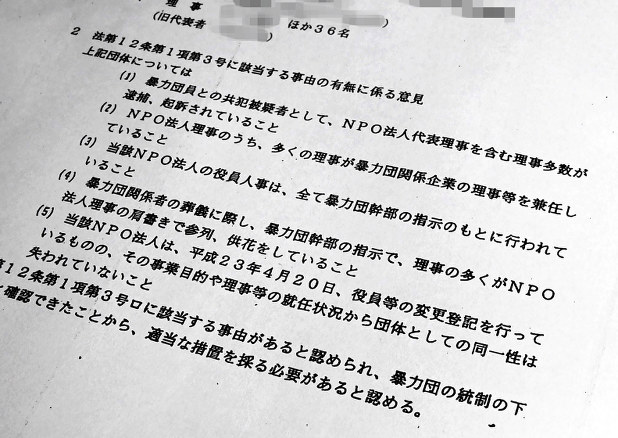 理 事
(旧代表者
ほか36名
)
)
2 法第12条第1項第3号に該当する事由の有無に係る意見
上記団体については
(1) 暴力団員との共犯被疑者として、NPO法人代表理事を含む理事多数が
逮捕、起訴されていること
(2) NPO法人理事のうち、多くの理事が暴力団関係企業の理事等を兼任し
ていること
(3) 当該NPO法人の役員人事は、全て暴力団幹部の指示のもとに行われて
いること
(4) 暴力団関係者の葬儀に際し、暴力団幹部の指示で、理事の多くがNPO
法人理事の肩書きで参列、供花をしていること
(5) 当該NPO法人は、平成23年4月20日、役員等の変更登記を行って
いるものの、その事業目的や理事等の就任状況から団体としての同一性は
失われていないこと
12条第1項第3号ロに該当する事由があると認められ、暴力団の統制の下
確認できたことから、適当な措置を採る必要があると認める。